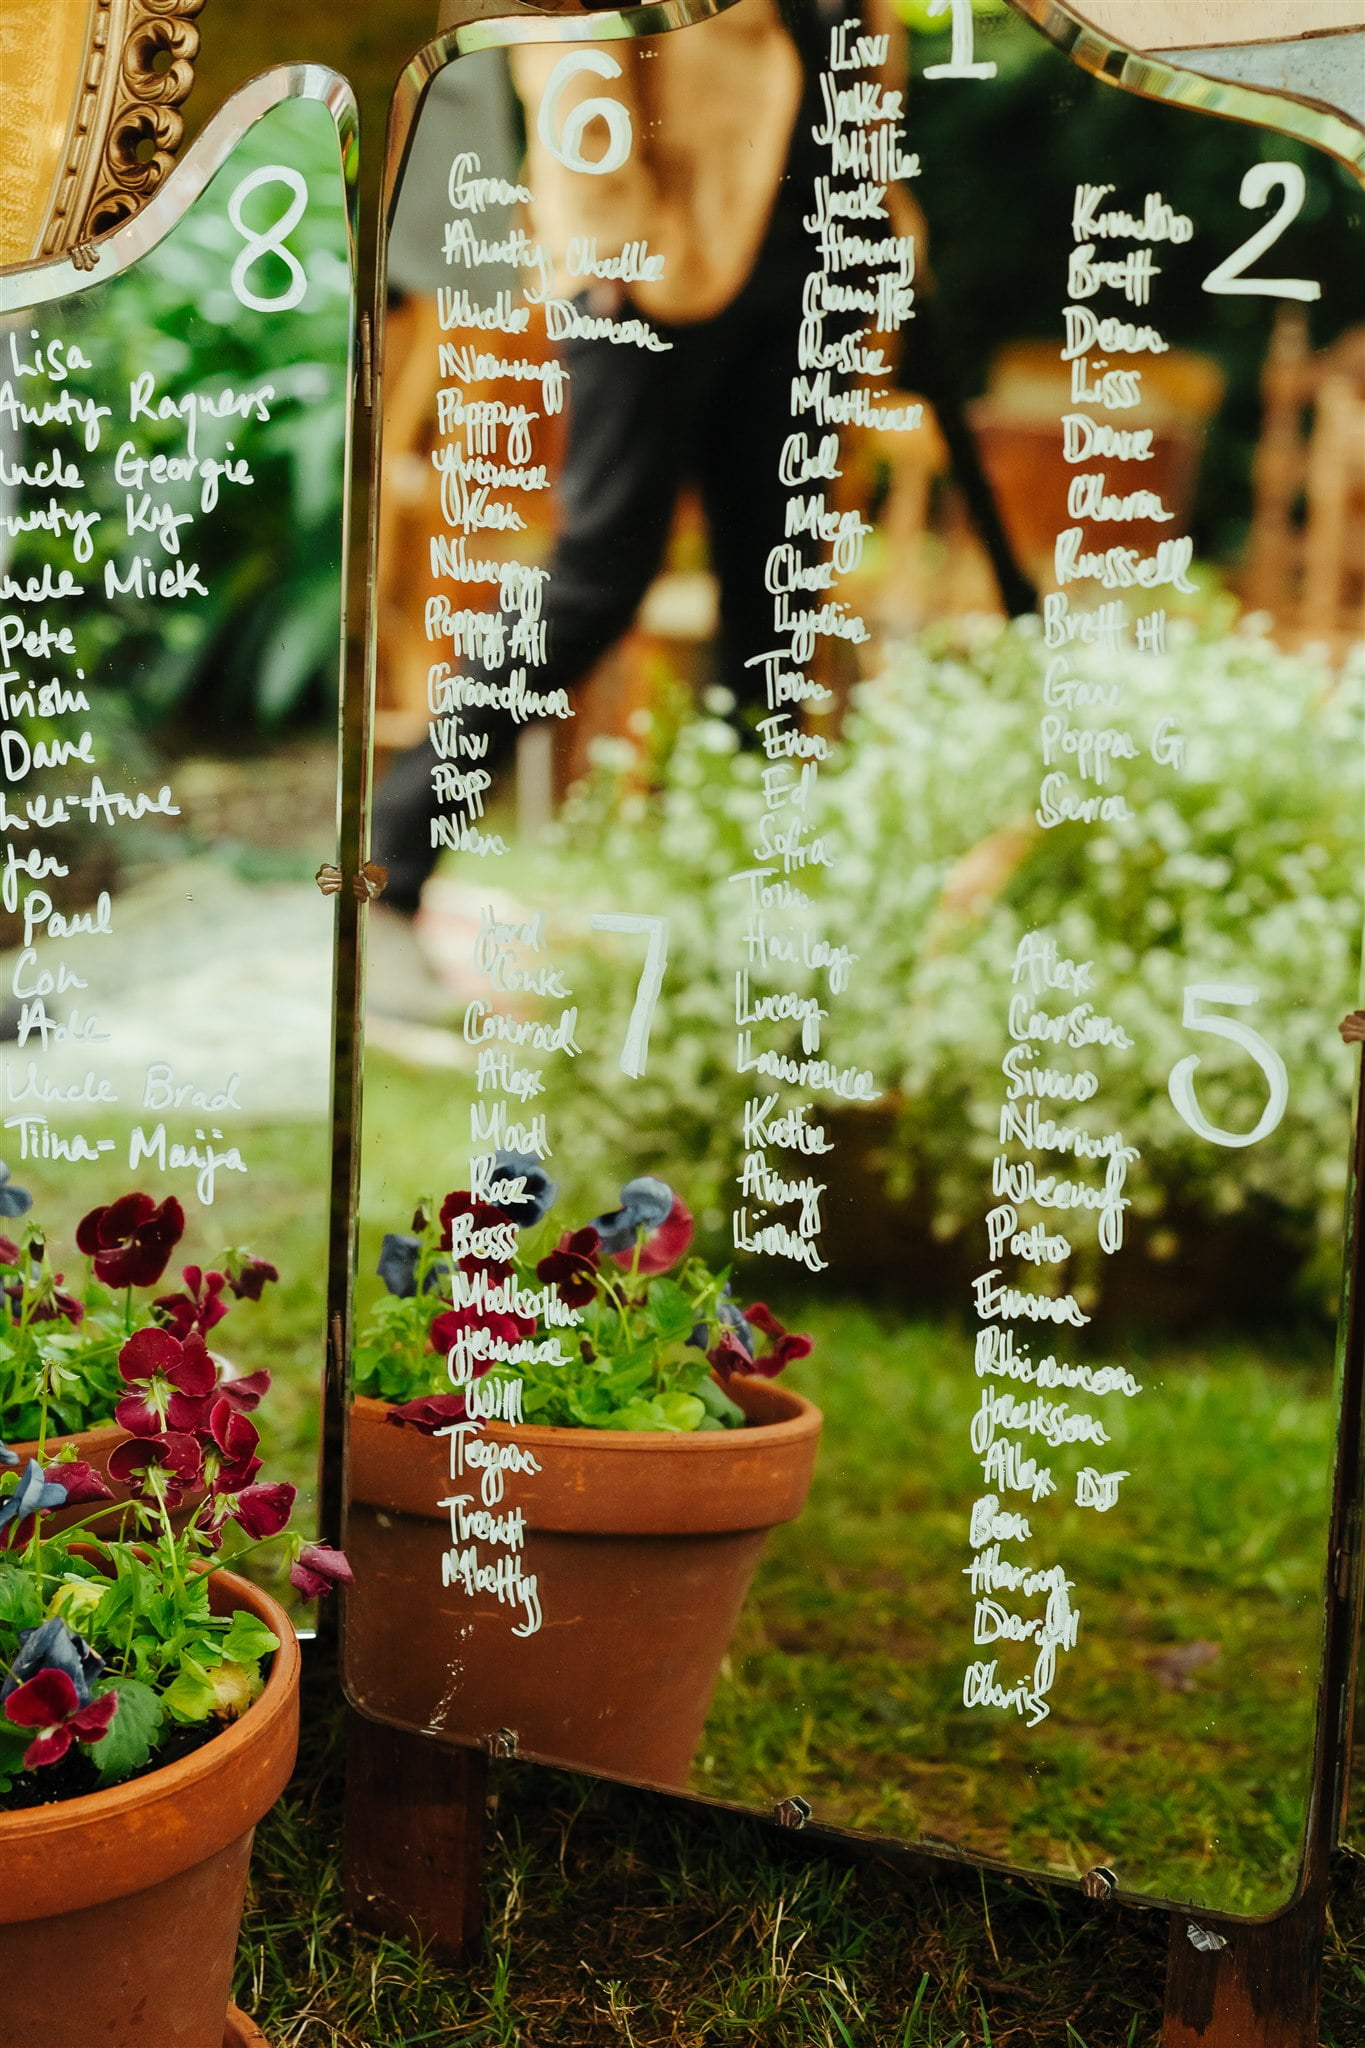 8
Lisa
Aunty Raquers
Uncle Georgie
Aunty Ky
Uncle Mick
Pete
Trishi
Dave
Lee-Anne
Jen
Paul
Con
Ade
Uncle Brad
Tiina-Maija
6
Gran
Aunty
Uncle Damon
Nanny
Poppy
Yvonne
Ken
Poppy All
Grandma
Viv
Pop
Nan
7
Jard
Conk
Conrad
Alex
Madl
Raz
Bess
Malcolm
Jemma
Will
Tegan
Trent
Matty
1
Liv
Jake
Millie
Jack
Henry
Camille
Rosie
Matthias
Cal
Meg
Lydia
Tom
Evan
Ed
Sofia
Tom
Hailey
Lucy
Lawrence
Katie
Amy
Liam
2
Kimbo
Brett
Dean
Liss
Dave
Russell
Brett H
Gav
Poppa G
Sara
5
Alex
Carson
Simo
Nanny
Weeny
Patto
Emma
Rhiannon
Jackson
Alex DJ
Ben
Harry
Daryll
Chris